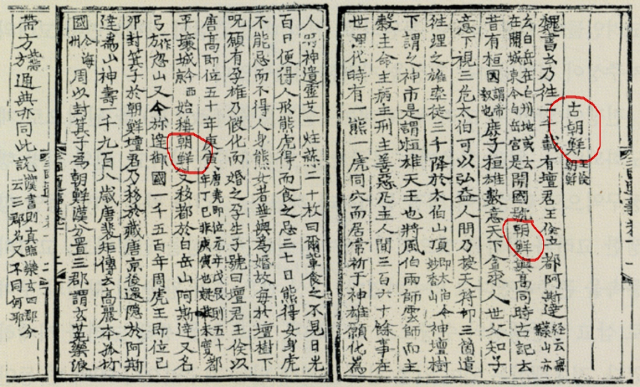 古朝鮮 王儉朝鮮
魏書云乃徃二千載有壇君王儉立都阿斯達 經云無葉山亦
云白岳在白州地或云在開城東今白岳宮是 開國號朝鮮與高同時古記云
昔有桓因 謂帝釋也 庶子桓雄數意天下貪求人世父知子
意下視三危太伯可以弘益人間乃授天符印三箇遣
徃理之雄率徒三千降於太伯山頂 即太伯今妙香山 神壇樹
下謂之神市是謂桓雄天王也將風伯雨師雲師而主
糓主命主病主刑主善惡凡主人間三百六十餘事在
世理化時有一熊一虎同穴而居常祈于神雄願化為
人時神遺靈艾一炷蒜二十枚曰爾輩食之不見日光
百日便得人形熊虎得而食之忌三七日熊得女身虎
不能忌而不得人身熊女者無與為婚故每於壇樹下
呪願有孕雄乃假化而婚之孕生子號曰壇君王儉以
唐高即位五十年庚寅 唐堯即位元年戊辰則五十年丁巳非庚寅也疑其未實 都
平壤城 今西京 始稱朝鮮又移都於白岳山阿斯達又名
弓 忽山又今旀達御國一千五百年周虎王即位己
卯封箕子於朝鮮壇君乃移於藏唐京後還隱於阿斯
達為山神壽一千九百八歲唐裵矩傳云高麗本孤竹
國 今海州 周以封箕子為朝鮮漢分置三郡謂玄菟樂浪
帶方 北帶方 通典亦同此說 漢書則真臨樂玄四郡今云三郡名又不同何耶